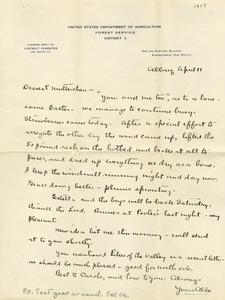 1917
UNITED STATES DEPARTMENT OF AGRICULTURE
FOREST SERVICE
DISTRICT 3
ADDRESS REPLY TO
DISTRICT FORESTER
AND REFER TO
ALBUQUERQUE, NEW MEXICO
Albuq April 11
Dearest Mutterchen —
"You and me too", as to a lone-
some Easter. We manage to continue busy.
Strawberries came today. After a special effort to
irrigate the other day the wind came up, lifted the
50 pound sash on the hotbed and broke it all to
pieces, and dried up everything as dry as a bone.
I keep the windmill running night and day now.
Grass doing better — plums sprouting.
Estella and the boys will be back Saturday,
thank the Lord. Dinner at Pooler's last night — very
pleasant.
New idea hit me this morning — will send
it to you shortly.
You mentioned lilies of the valley in a recent letter.
We should be much pleased — good for north side.
Best to Carolo, and love to you. Always
Your Aldo
P.S. Feet good as usual. Feel OK.